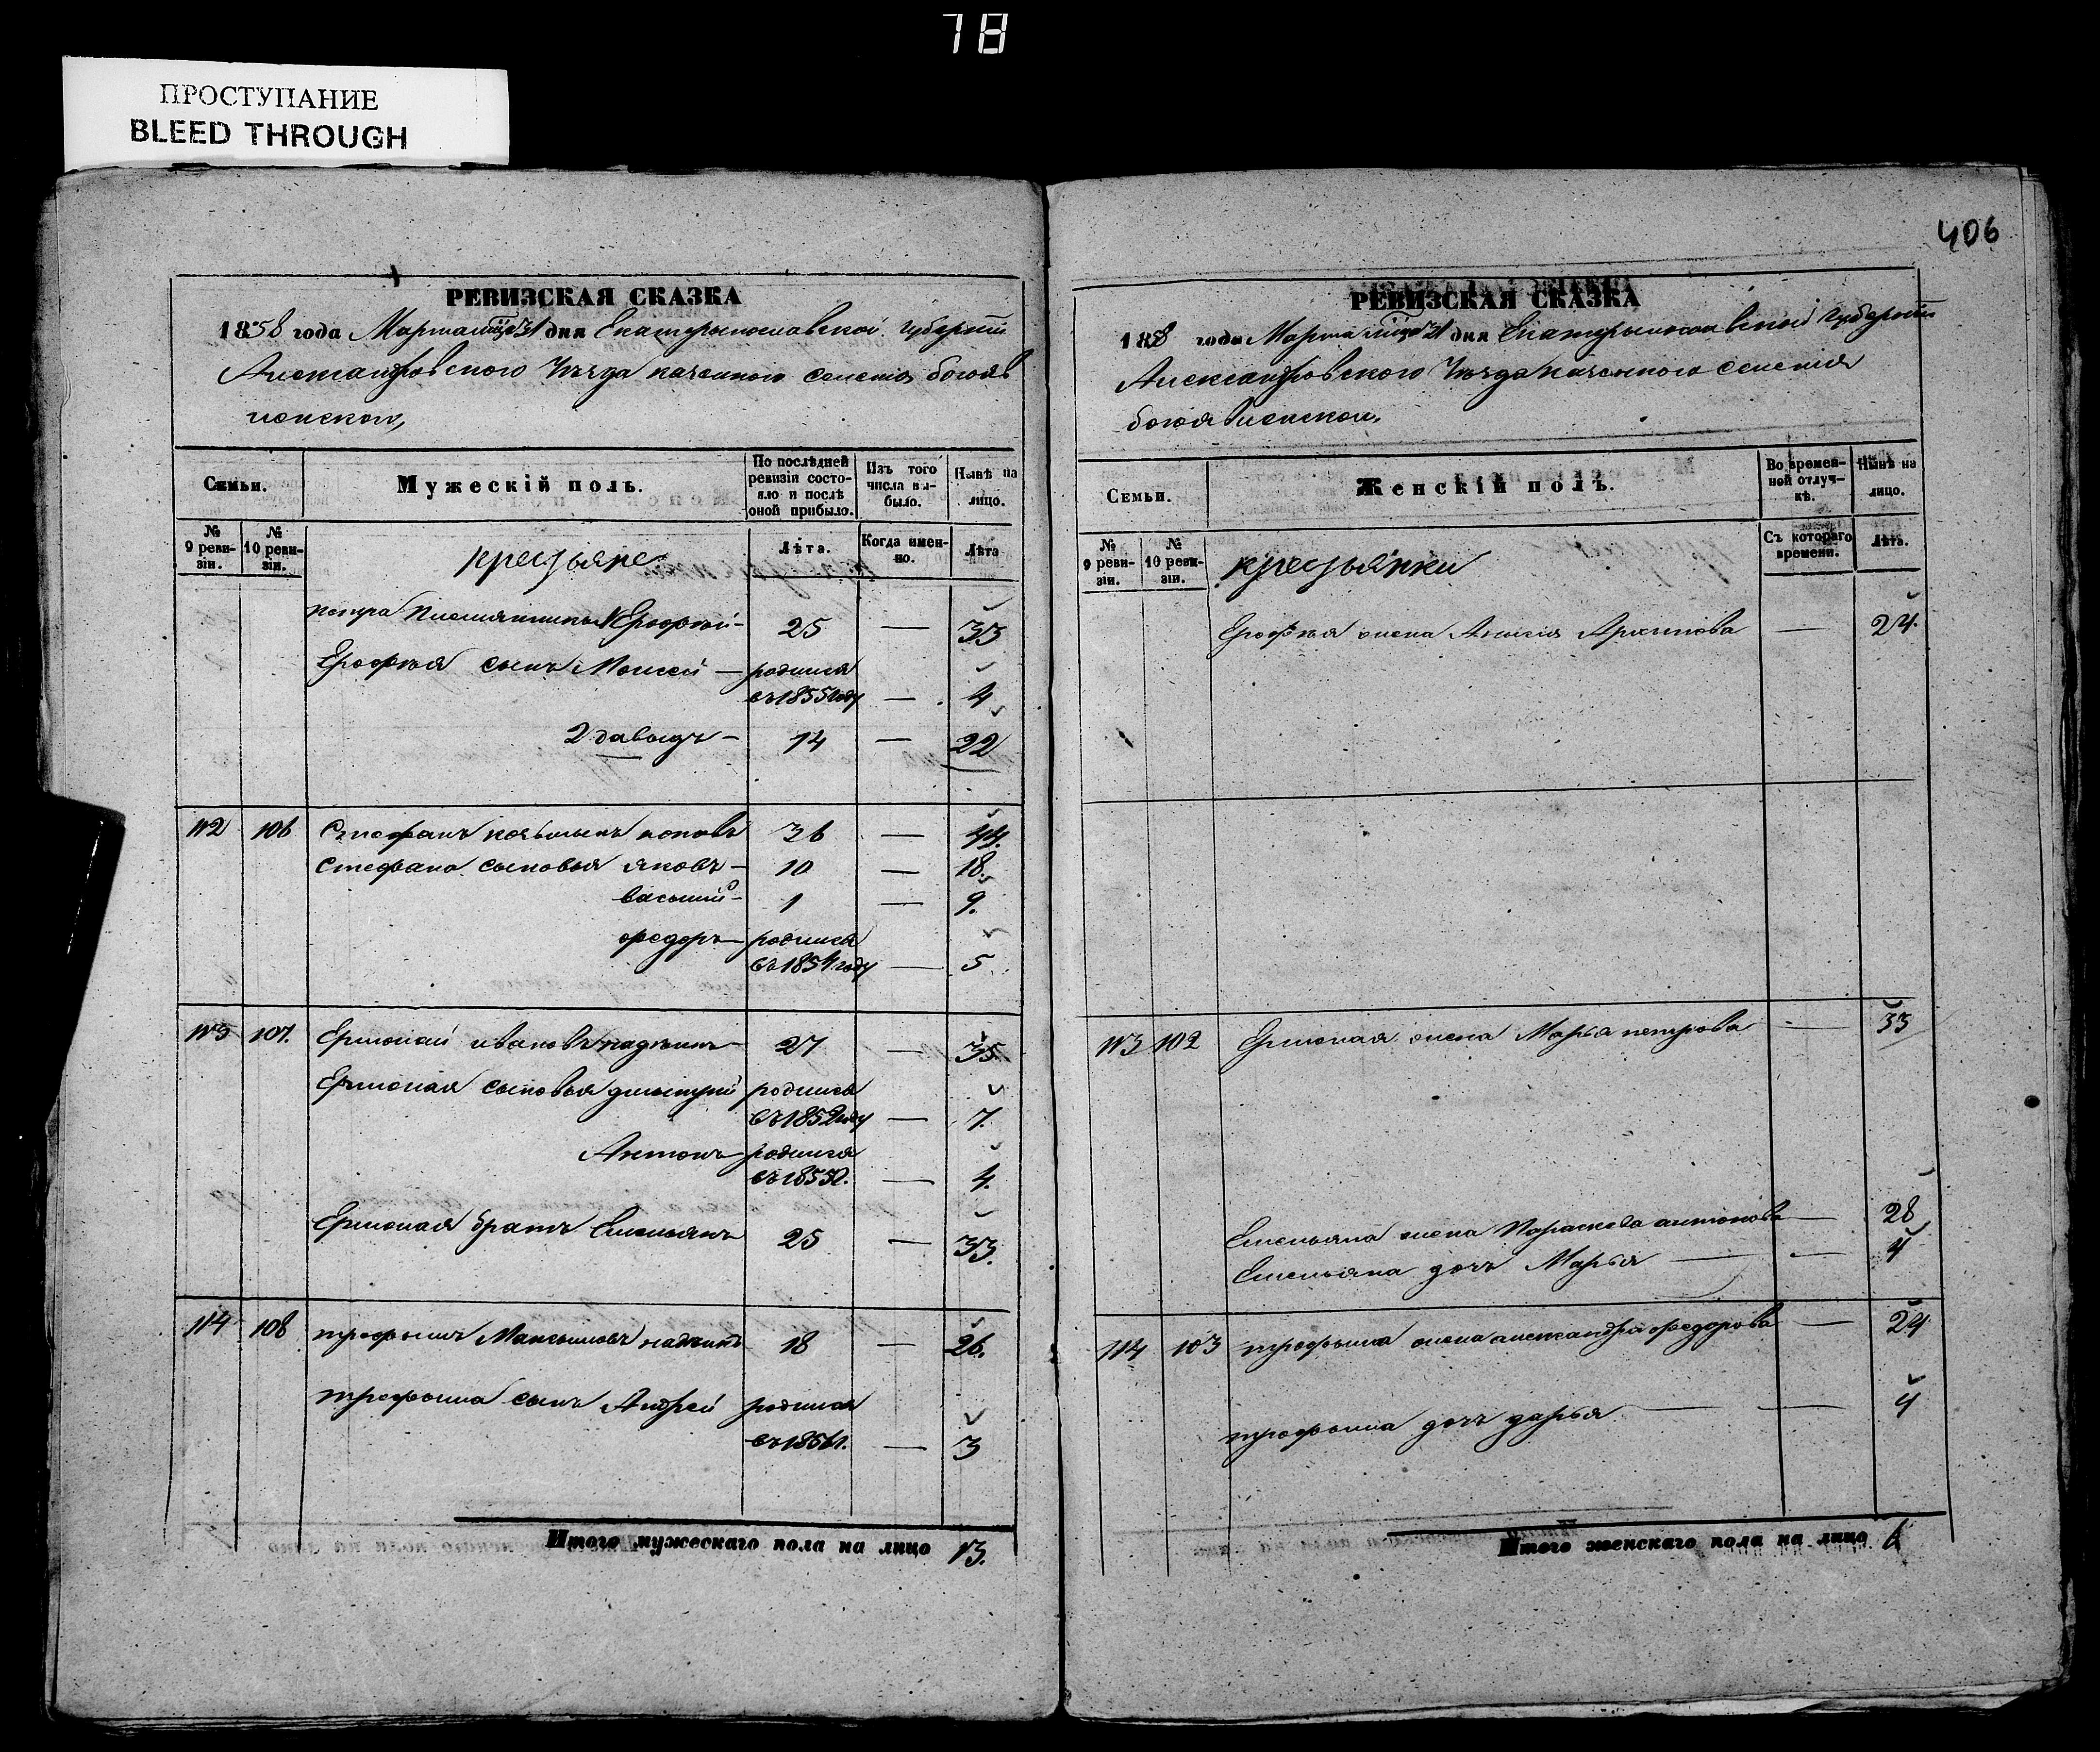 78
ПРОСТУПАНИЕ
BLEED THROUGH
РЕВИЗСКАЯ СКАЗКА
1858 года Марта дня Екатеринославской губернии
Александровского Уезда казенного селения богояв
ленском,
Семьи.
Мужескій полъ.
По послѣдней ревизіи состояло и послѣ оной прибыло.
Изъ того числа выбыло.
Нынѣ на лицо.
№ 9 ревизіи.
№ 10 ревизіи.
крестьяне
Лѣта.
Когда именно.
Лѣта
петра Ерофей 25 — 33
Ерофея сынъ Моисей — родился
въ 1855 году — 4
2 давыдъ — 14 — 22
112 106 Стефанъ поповъ 36 — 44.
Стефана сыновья яковъ — 10 — 18.
василий — 1 — 9.
федоръ — родился
въ 1854 году — 5
113 107. Ермолай ивановъ 27 — 35
Ермолая сыновья дмитрий родился
въ 1852 году — 7.
Антонъ — родился
въ 1855г. — 4.
Ермолая братъ Емельянъ 25 — 33.
114 108 трофимъ Максимовъ 18 — 26.
трофима сынъ Андрей родился
въ 1856г. — 3
Итого мужескаго пола на лицо 13.
406
РЕВИЗСКАЯ СКАЗКА
1858 года Марта дня Екатеринославской губернии
Александровского Уезда казенного селения
богоявленском,
Семьи.
Женскій полъ.
Во временной отлучкѣ.
Нынѣ на лицо.
№ 9 ревизіи.
№ 10 ревизіи.
крестьянки
Съ котораго времени.
Лѣта.
Ерофея жена Анисия Архипова — 24.
113 102 Ермолая жена Марья петрова — 33
Емельяна жена Параскева антонова — 28
Емельяна дочь Марья — — 4
114 103 трофима жена александра федорова — 24
трофима дочь дарья — — 4
Итого женскаго пола на лицо 6